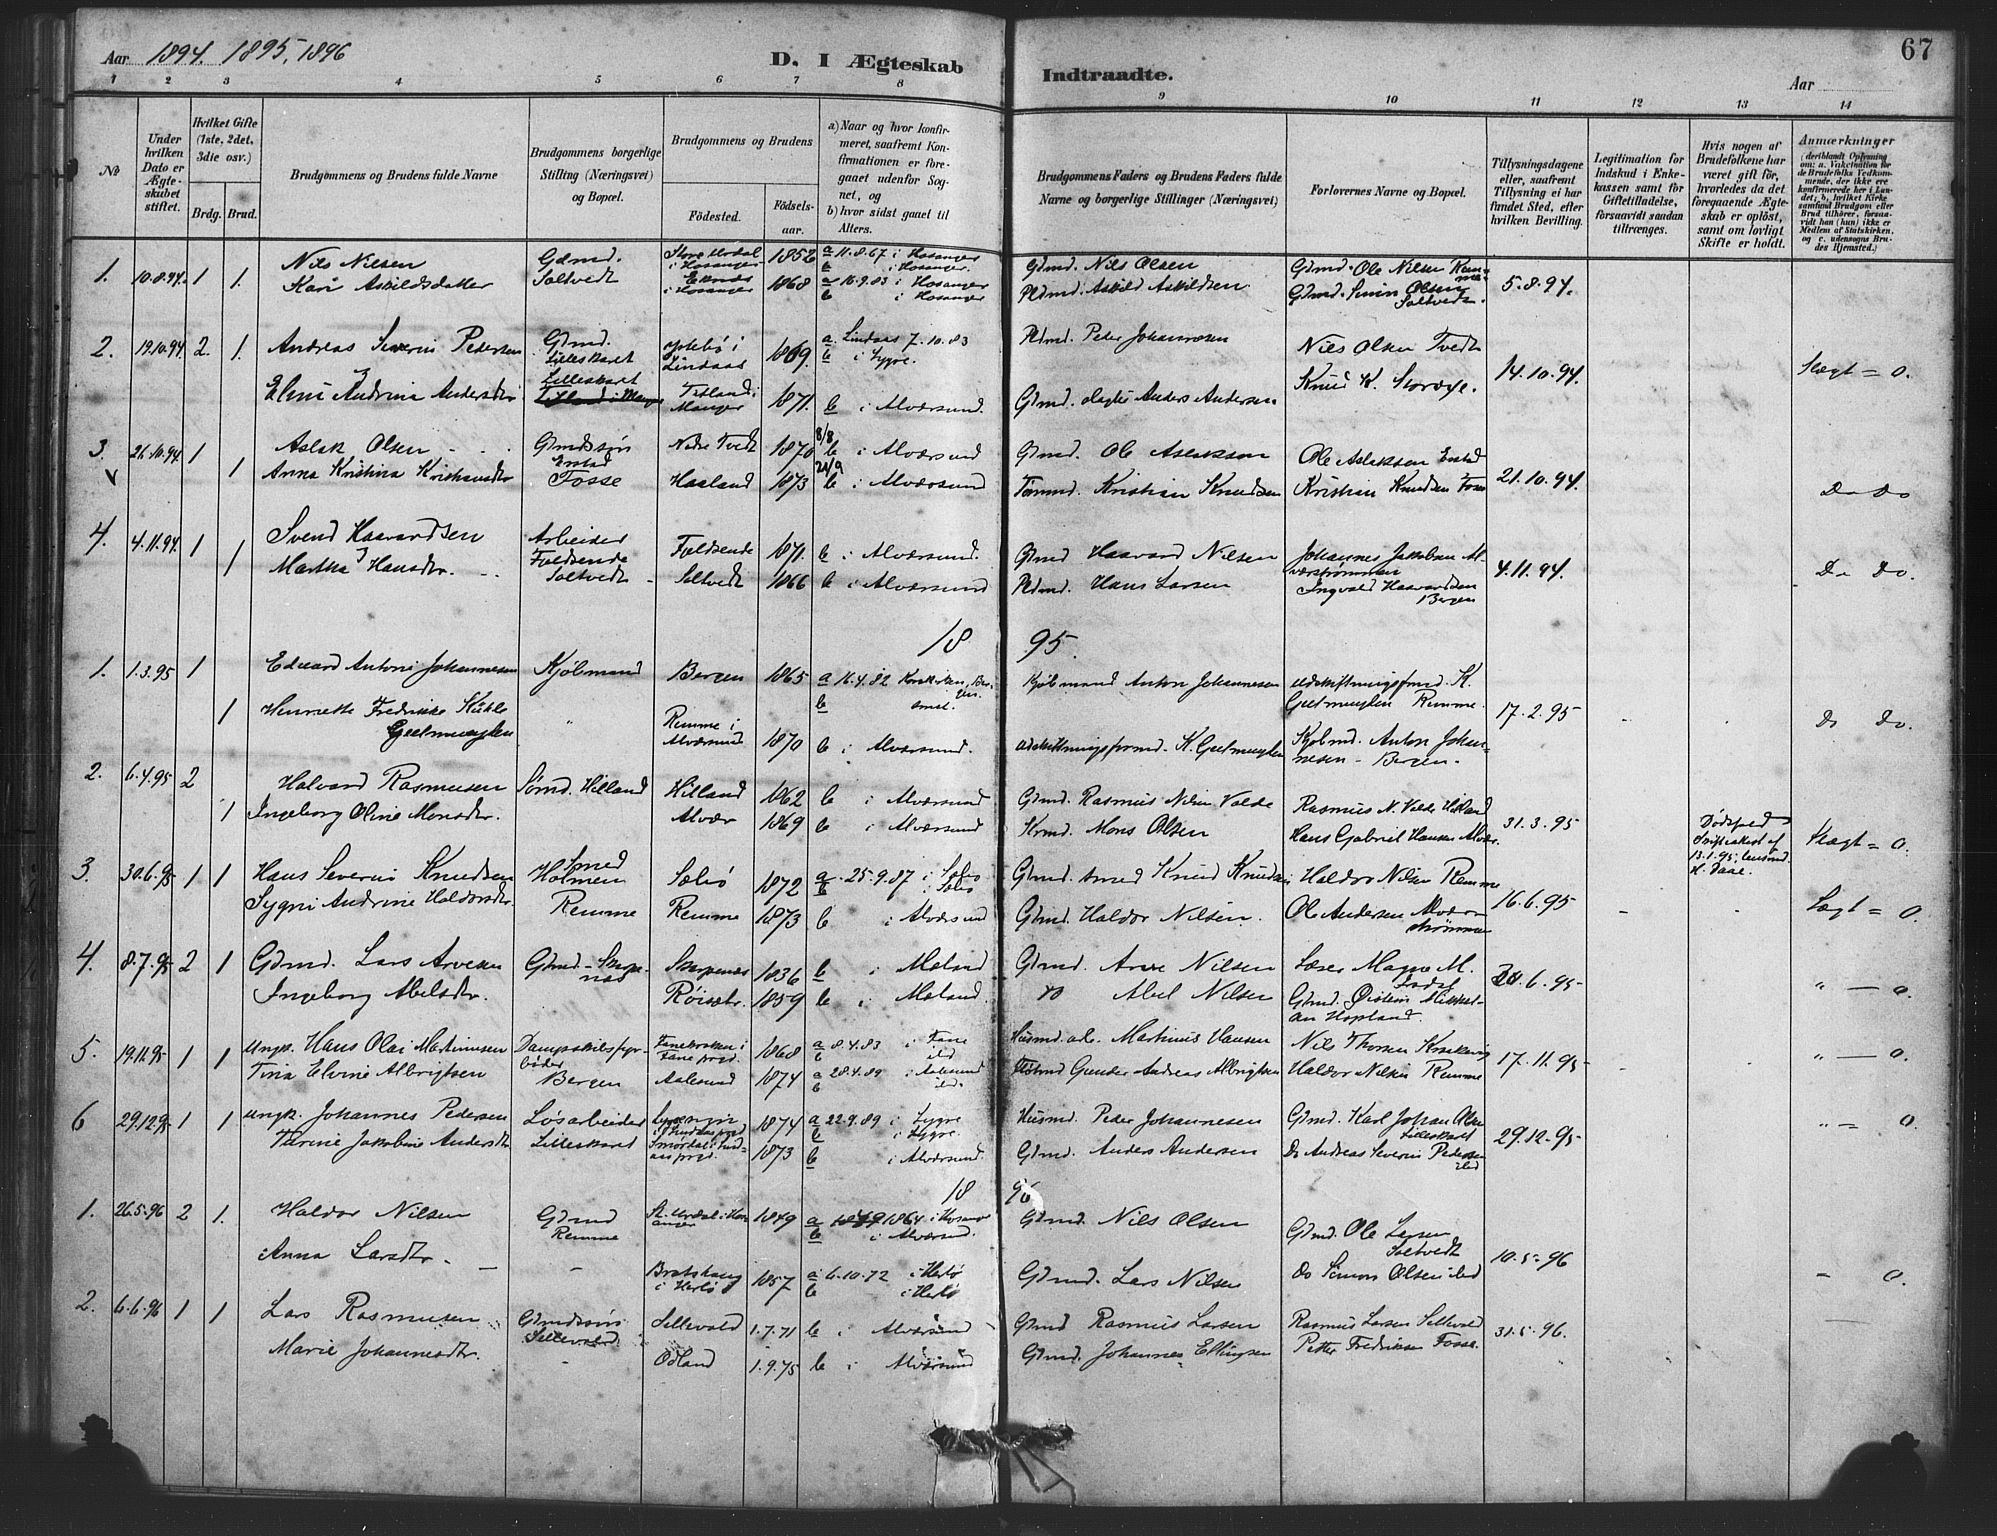 Aar 1894. 1895, 1896
D. I Ægteskab Indtraadte.
Aar
67
1 2 3 4 5 6 7 8 9 10 11 12 13 14
No
Under hvilken Dato er Ægteskabet stiftet.
Hvilket Gifte (1ste, 2det, 3die osv.)
Brdg. Brud.
Brudgommens og Brudens fulde Navne
Brudgommens borgerlige Stilling (Næringsvei) og Bopæl.
Brudgommens og Brudens
Fødested.
Fødselsaar.
a) Naar og hvor konfirmeret, saafremt Konfirmationen er foregaaet udenfor Sognet, og
b) hvor sidst gaaet til Alters.
Brudgommens Faders og Brudens Faders fulde Navne og borgerlige Stillinger (Næringsvei)
Forlovernes Navne og Bopæl.
Tillysningsdagene eller, saafremt Tillysning ei har fundet Sted, efter hvilken Bevilling.
Legitimation for Indskud i Enkekassen samt for Giftetilladelse, forsaavidt saadan tiltrænges.
Hvis nogen af Brudefolkene har været gift før, hvorledes da det foregaaende Ægteskab er opløst, samt om lovligt Skifte er holdt.
Anmærkninger
(deriblandt Oplysning om: a. Vakcination for de Brudefolks Vedkommende, der ikke ere konfirmerede her i Landet; b, hvilket Kirkesamfund Brudgom eller Brud tilhører, forsaavidt han (hun) ikke er Medlem af Statskirken, og c. udensogns Brudes Hjemsted.)
1. 10.8.94. 1 1. Nils Nilsen Gdmd. Store Urdal i Hosanger 1852 a 11.8.67 i Hosanger b i Hosanger. Gdmd. Nils Olsen Gdmd. Ole Nilsen 5.8.94.
Kari Askildsdatter Soltvedt i Hosanger 1868 a 16.9.83 i Hosanger b i Hosanger Pldmd. Askild Askildsen Gdmd. Simon Olsen Soltvedt.
2. 19.10.94. 2. 1. Andreas Severin Pedersen Gdmd. Lilleskaret i Lindaas 1869. a. Lindaas 7.10.83 b i Lygre. Pldmd. Peder Johannesen Nils Olsen Tvedt 14.10.94. Slægt = 0.
Elini Andrina Andersdtr Lilleskaret Titland i Manger Titland i Manger 1871. b i Alværsund. Gdmd. Anders Andersen Knud K. Storøye.
3. 26.10.94 1 Aslak Olsen Gmdssøn Nedre Tvedt 1870 8/8 b i Alværsund Gdmd. Ole Aslaksen Ole Aslaksen 21.10.94. Do Do
1 Anna Kristina Kristiansdtr Fosse Haaland 1873 24/9 b i Alværsund Kristian Knudsen Kristian Knudsen Fosse
4. 4.11.94. 1 Svend Haavardsen Arbeider Fjeldsende Fjeldsende 1871. b i Alværsund. Gdmd Haavard Nilsen Johannes Jakobsen Alværstrømmen 4.11.94. Do Do.
1 Martha Hansdtr. Soltvedt Soltvedt 1866 b i Alværsund Pldmd. Hans Larsen Ingvald Haavardsen Bergen
18 95.
1. 1.3.95 1 Edvard Antoni Johannesen Kjøbmand Bergen 1865 a 16.4.82 Korskirken, Bergen. b smst. Kjøbmand Anton Johannesen Udskiftningsfmd. K. Geelmuyden Remme. 17.2.95 Do Do.
1 Henriette Fredrikke Kühle Geelmuyden Remme i Alværsund 1870 b i Alværsund. Udskiftningsformd. K. Geelmuyden Kjøbmd. Anton Johannesen - Bergen.
2. 6.4.95 2 Halvard Rasmusen Hilland Hilland 1862 b i Alværsund Gdmd. Rasmus Nilsen Valde Rasmus N. Valde Hilland 31.3.95 Dødsfald Skifteakkt af 13.1.95, lensmd. H. Daae. Slægt = 0.
1 Ingeborg Oline Monsdtr. Alvær 1869 b i Alværsund Mons Olsen Hans Gabriel Hansen Alvær.
3. 30.6.95 1 1 Hans Severin Knudsen Smed Holmen Sæbø 1872 a 25.9.87 i Sæbø b i Sæbø Gdmd. Smed Knud Knudsen Haldor Nilsen Remme 16.6.95 Slægt = 0.
Sygni Andrine Haldorsdtr Remme Remme 1873 b i Alværsund Gdmd. Haldor Nilsen. Ole Andersen Alværstrømmen
4. 8.7.95 2 1 Gdmd. Lars Arvesen Gdmd. Skurpenes 1836 b i Mæland Gdmd Arve Nilsen Magne M. 6.95 " — 0.
Ingeborg Abelsdtr. 1859 b i Mæland. Do Abel Nilsen Gdmd. Hopland.
5. 19.11.95 1 1 Ungk. Hans Olai Martinusen Dampskibsfyrbøder i Fane præd. 1868 a 8.4.83 i Fane b ibd Martinus Hansen Nils Thorsen 17.11.95 " — 0.
Tina Elvine Albrigtsen Bergen Aalesund 1874 a 28.4.89 i Aalesund b ibd. Gunder Andreas Albrigtsen Haldor Nilsen Remme
6 29.12.95 1 1 Ungk. Johannes Pedersen Løsarbeider 1874 a 22.9.89 i Lygre b i Lygre. Husmd. Peder Johannesen Gdmd. Karl Johan Olsen Lilleskaret 29.12.95 " = 0.
Tarine Jakobine Andersdtr Lilleskaret 1873 b i Alværsund. Gdmd. Anders Andersen Do Andreas Severin Pedersen ibd
18 96
1. 26.5.96 2 1. Haldor Nilsen Gdmd Remme St. Urdal i Hosanger 1849 a 1864 i Hosanger b i Alværsund. Gdmd. Nils Olsen Gdmd. Ole Larsen Soltvedt 10.5.96 " 0.
Anna Larsdtr. - i Herlø 1857 a 6.10.72 i Herlø b i Herlø Gdmd. Lars Nilsen Do Simon Olsen ibd
2. 6.6.96 1 1 Lars Rasmusen Gdmdssøn Sellevold Sellevold 1.7.71 b i Alværsund Gdmd Rasmus Larsen Rasmus Larsen Sellevold 31.5.96.
Marie Johannesdtr. - Odland 1.9.75 b i Alværsund Gdmd. Johannes Ellingsen Petter Fredriksen Fosse.